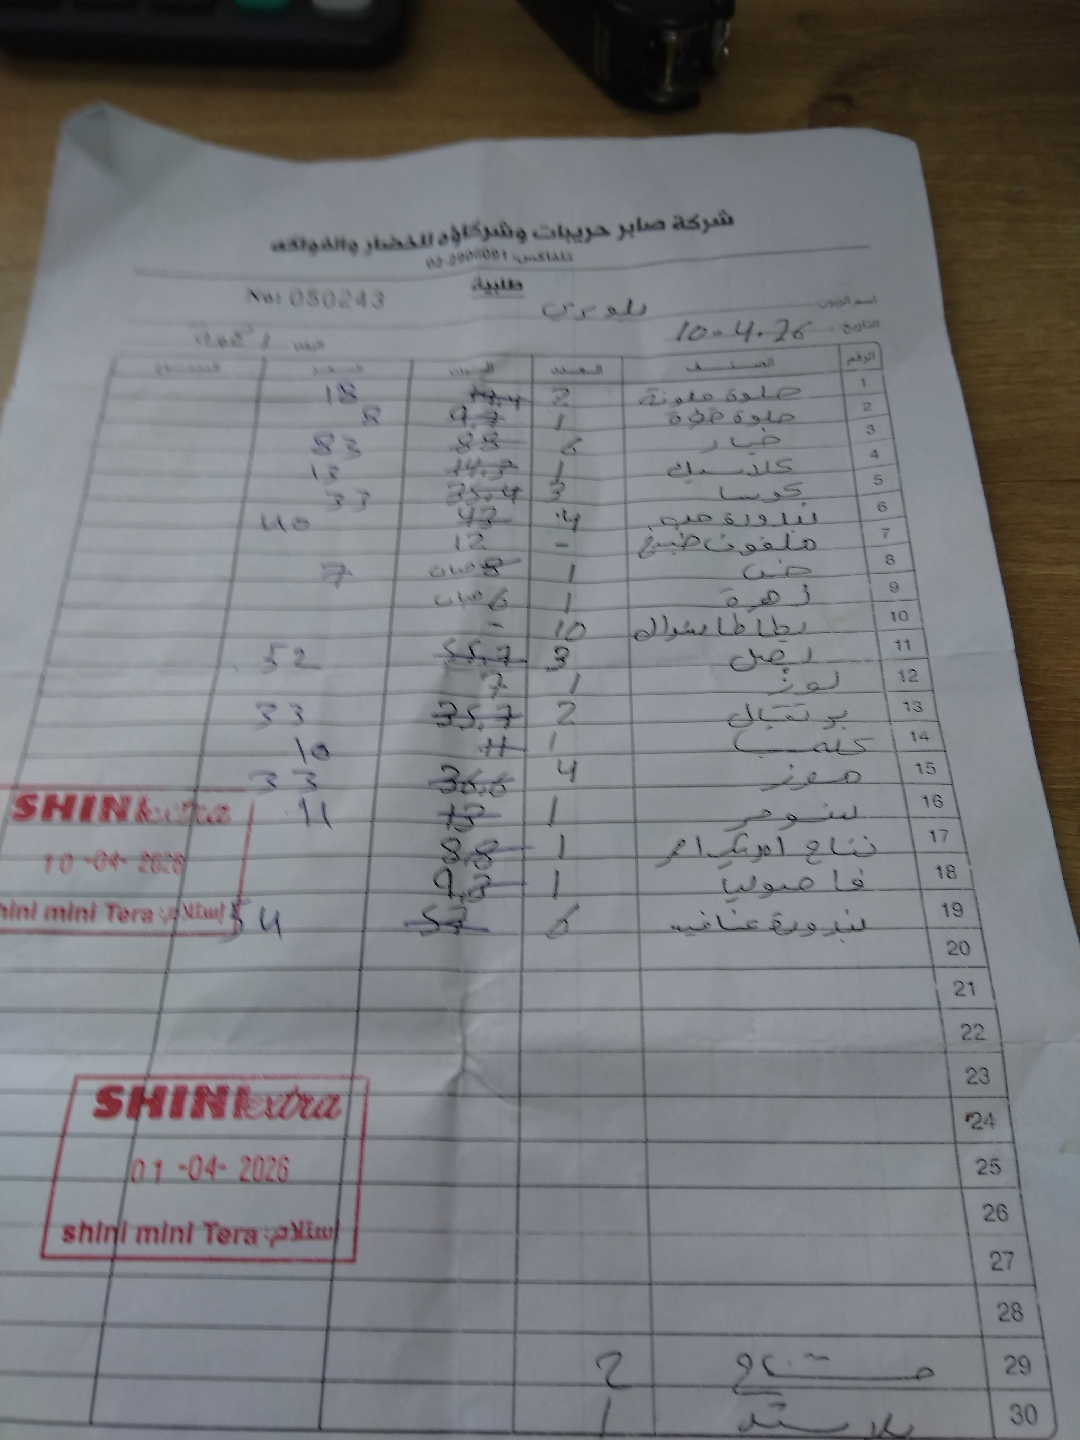 شركة صابر حريبات وشركاؤه للخضار والفواكه
تلفاكس: 02-2906091
طلبية
No: 050243
اسم الزبون:
التاريخ: 10-4-26
الرقم الصنف العدد الوزن السعر المجموع
1 حلوة ملونة 2 18
2 حلوة 1 9.7 8
3 خيار 6 88 83
4 كلاسيك 1 14.7 13
5 كوسا 3 35.4 33
6 بندورة 4 43 40
7 ملفوف - 12
8 خس 1 8 7
9 زهرة 1 6
10 بطاطا 10 -
11 بصل 3 55.7 52
12 لوز 1 7
13 برتقال 2 35.7 33
14 1 11 10
15 موز 4 36.6 33
16 1 13 11
17 1 8.8
18 فاصوليا 1 9.3
19 بندورة 6 57 54
20
21
22
23
24
25
26
27
28
29 2
30 1
SHINI extra
10-04-2026
shini mini Tera استلام
SHINI extra
01-04-2026
shini mini Tera استلام